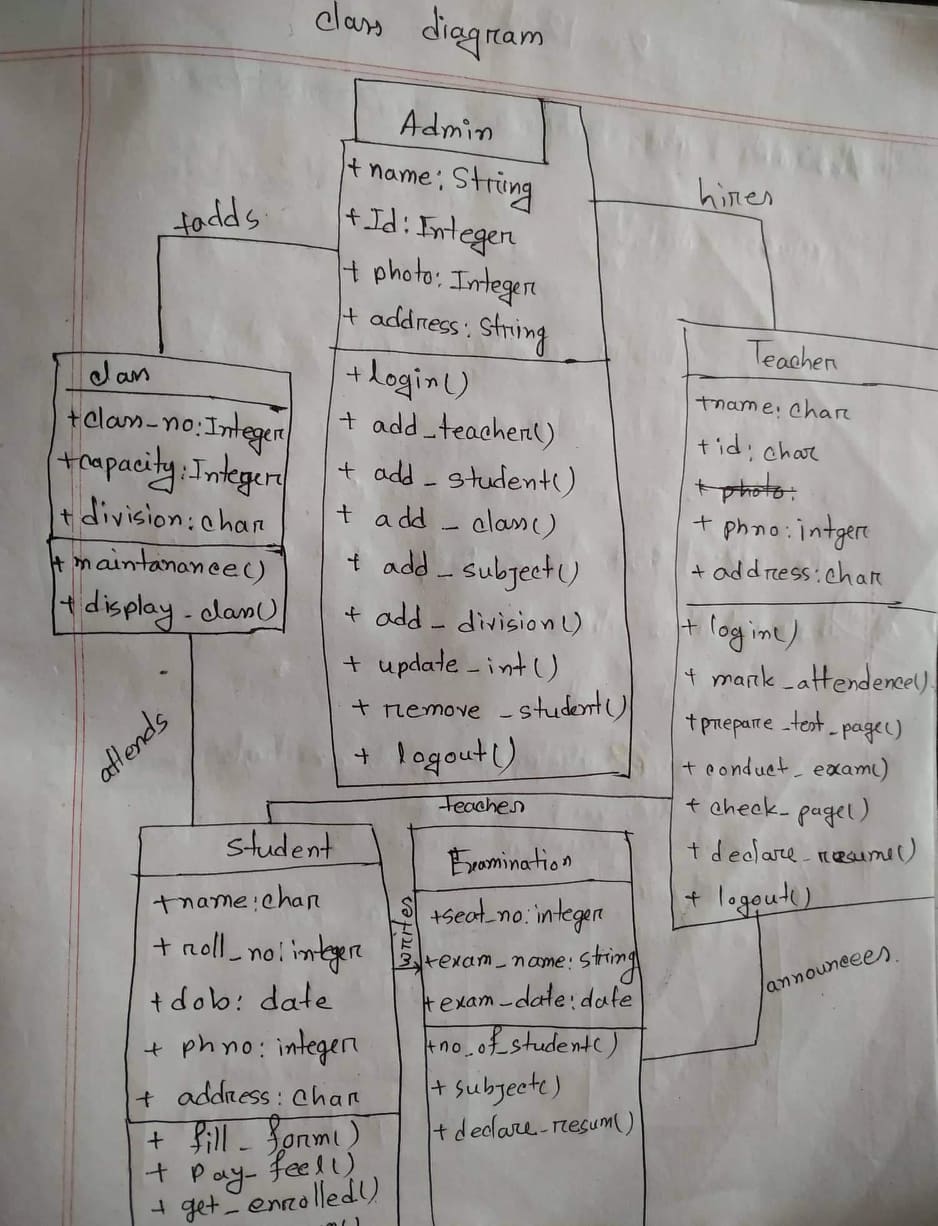 class diagram
Admin
+ name: String
+ Id: Integer
+ photo: Integer
+ address: String
+ login()
+ add_teacher()
+ add_student()
+ add_class()
+ add_subject()
+ add_division()
+ update_int()
+ remove_student()
+ logout()
+adds
hires
class
+ class_no: Integer
+ capacity: Integer
+ division: char
+ maintanance()
+ display_class()
Teacher
+name: char
+ id: char
+ photo:
+ phno: intger
+ address: char
+ login()
+ mark_attendence()
+ prepare_test_page()
+ conduct_exam()
+ check_page()
+ declare_resume()
+ logout()
attends
teaches
Student
+name: char
+ roll_no: integer
+ dob: date
+ phno: integer
+ address: char
+ fill_form()
+ pay_feel()
+ get_enrolled()
writes
Examination
+seat_no: integer
+exam_name: string
+exam_date: date
+no_of_student()
+ subject()
+ declare_resum()
announcees.